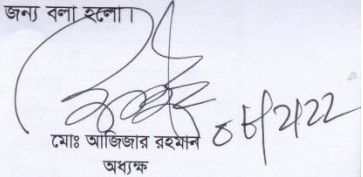 জন্য বলা হলো।
মোঃ আজিজার রহমান
অধ্যক্ষ